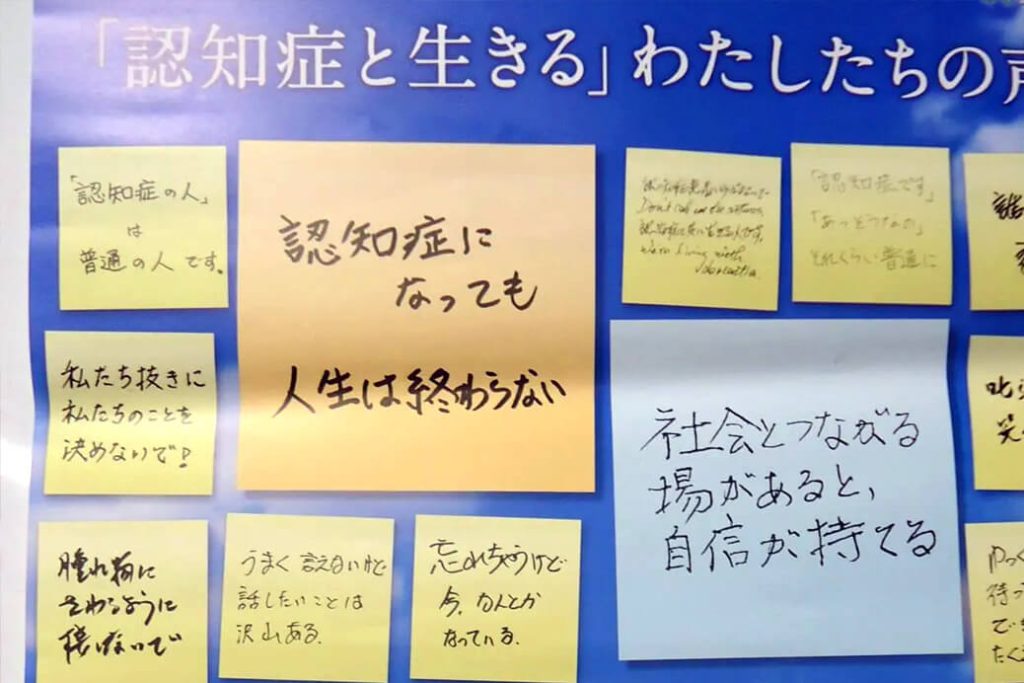 「認知症と生きる」わたしたちの声
「認知症の人」
は
普通の人です。
認知症に
なっても
人生は終わらない
Don't call me the
living with
dementia
「認知症です」
「あっそうなの」
それくらい普通に
私たち抜きに
私たちのことを
決めないで!
社会とつながる
場があると、
自信が持てる
叱ら
笑
腫れ物に
さわるように
接しないで
うまく言えないけど
話したいことは
沢山ある。
忘れちゃうけど
今、なんとか
なっている。
ゆっく
待っ
でき
たく